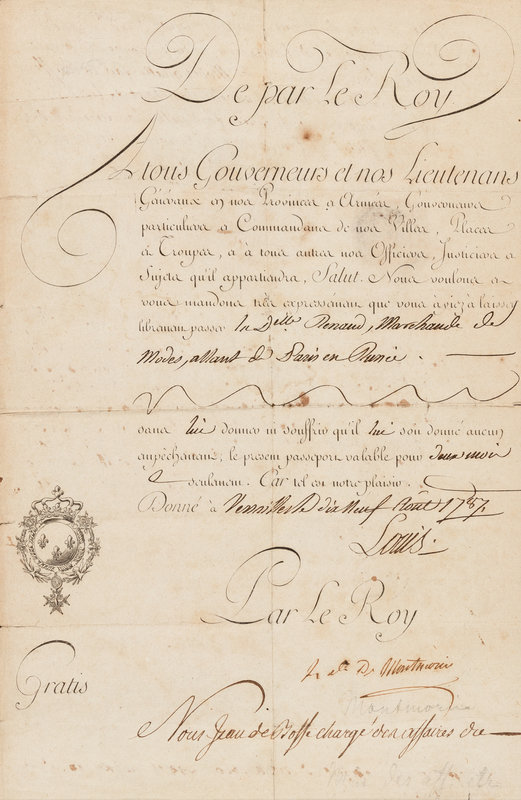 De par Le Roy
A tous Gouverneurs et nos Lieutenans
Généraux en nos Provinces & Armées, Gouverneurs
particuliers & Commandans de nos Villes, Places
& Troupes, & à tous autres nos Officiers, Justiciers &
Sujets qu'il appartiendra, Salut. Nous voulons &
vous mandons très expressément que vous ayiez à laisser
librement passer la Dlle Renaud, Marchande de
Modes, allant de Paris en Russie.
sans lui donner ni souffrir qu'il lui soit donné aucun
empêchement; le present passeport valable pour deux mois
seulement. Car tel est notre plaisir.
Donné à Versailles le dix neuf Août 1787.
Louis
Par Le Roy
Gratis
le cte De Montmorin
Montmorin
Nous Jean de Bosse chargé des affaires de